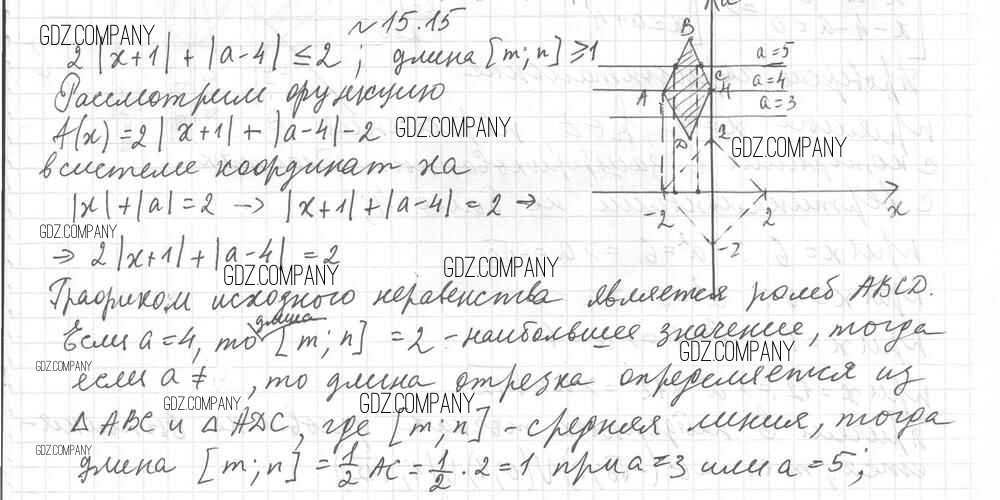 ~ 15.15
GDZ.COMPANY
2|x+1| + |a-4| ≤ 2 ; длина [m; n] ≥ 1
Рассмотрим функцию
A(x) = 2|x+1| + |a-4| - 2 GDZ.COMPANY
в системе координат xa
|x| + |a| = 2 → |x+1| + |a-4| = 2 →
GDZ.COMPANY
⇒ 2|x+1| + |a-4| = 2
GDZ.COMPANY GDZ.COMPANY
Графиком исходного неравенства является ромб ABCD.
длина
Если a=4, то [m; n] = 2 - наибольшее значение, тогда
GDZ.COMPANY
GDZ.COMPANY
если a ≠ , то длина отрезка определяется из
GDZ.COMPANY GDZ.COMPANY
△ ABC и △ ADC, где [m; n] - средняя линия, тогда
GDZ.COMPANY
длина [m; n] = 1/2 AC = 1/2 · 2 = 1 при a=3 или a=5;
a
B
a=5
A
C
4
a=4
a=3
D
2
GDZ.COMPANY
-2
2
x
-2